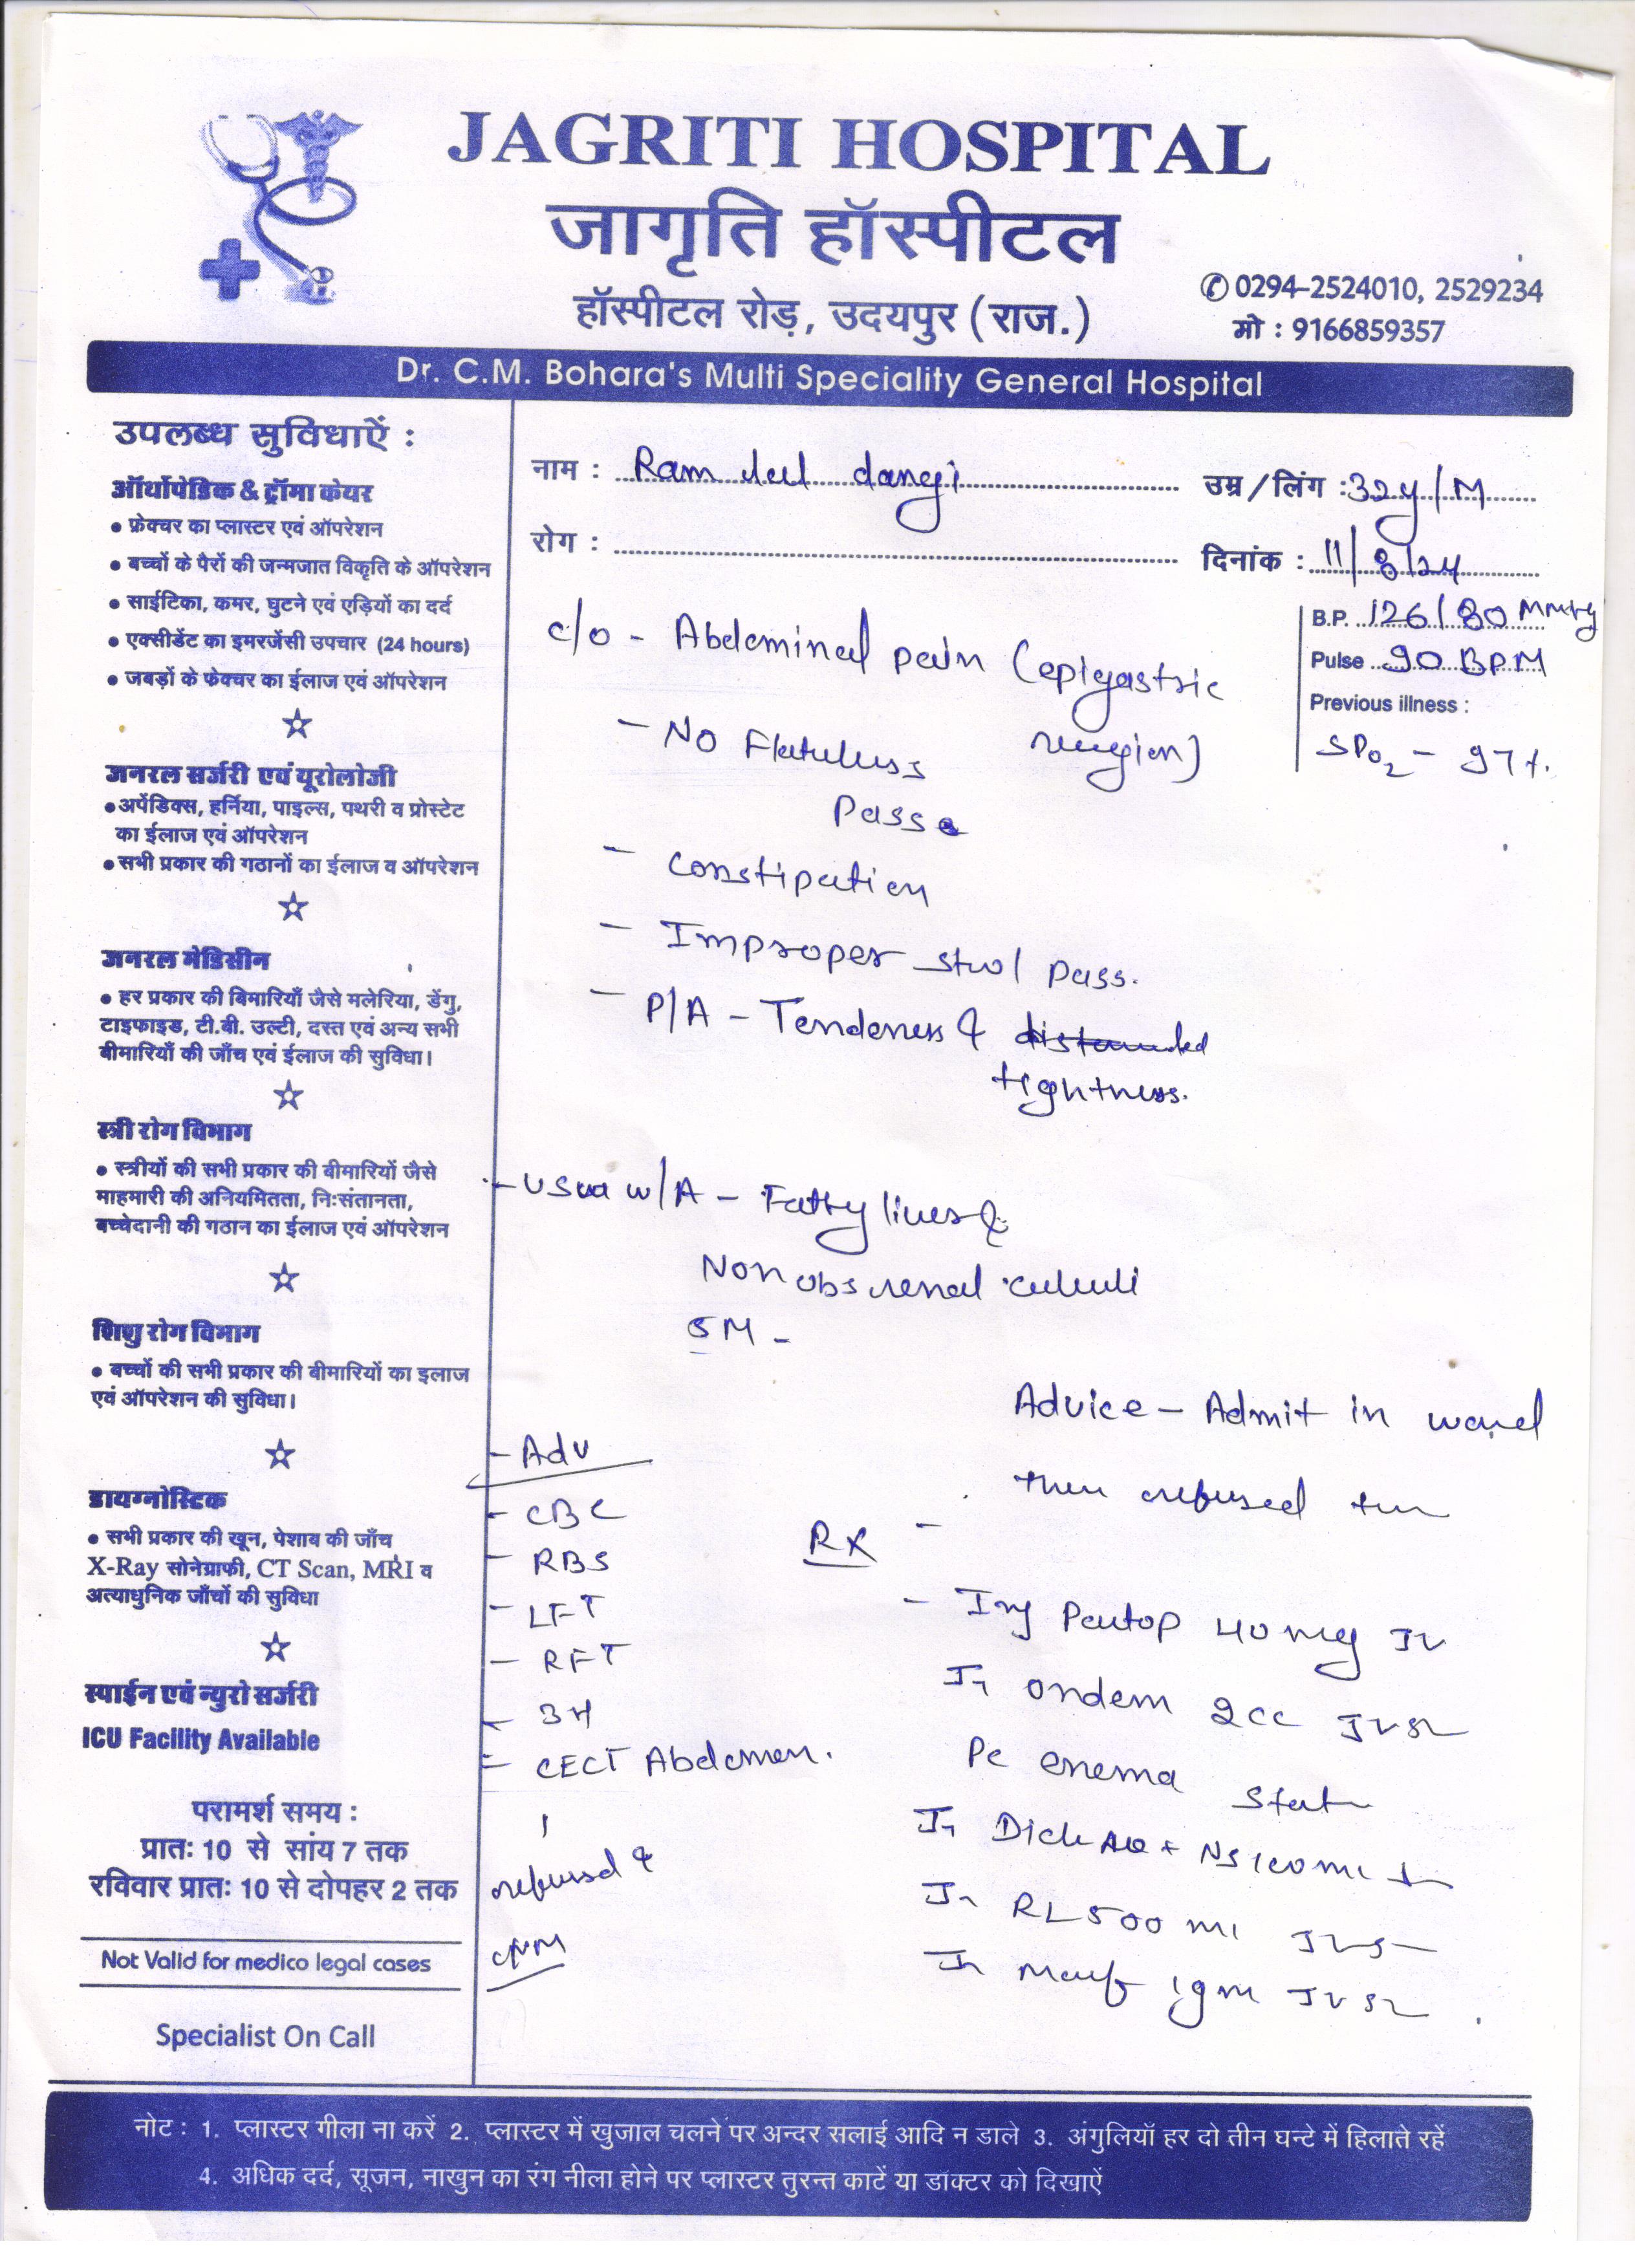 JAGRITI HOSPITAL
जागृति हॉस्पीटल
हॉस्पीटल रोड़, उदयपुर (राज.)
0294-2524010, 2529234
मो : 9166859357
Dr. C.M. Bohara's Multi Speciality General Hospital
उपलब्ध सुविधाऐं :
ऑर्थोपेडिक & ट्रॉमा केयर
• फ्रेक्चर का प्लास्टर एवं ऑपरेशन
• बच्चों के पैरों की जन्मजात विकृति के ऑपरेशन
• साईटिका, कमर, घुटने एवं एड़ियों का दर्द
• एक्सीडेंट का इमरजेंसी उपचार (24 hours)
• जबड़ों के फेक्चर का ईलाज एवं ऑपरेशन
जनरल सर्जरी एवं यूरोलोजी
• अपेंडिक्स, हर्निया, पाइल्स, पथरी व प्रोस्टेट
का ईलाज एवं ऑपरेशन
• सभी प्रकार की गठानों का ईलाज व ऑपरेशन
जनरल मेडिसीन
• हर प्रकार की बिमारियाँ जैसे मलेरिया, डेंगु,
टाइफाइड, टी.बी. उल्टी, दस्त एवं अन्य सभी
बीमारियाँ की जाँच एवं ईलाज की सुविधा।
स्त्री रोग विभाग
• स्त्रीयों की सभी प्रकार की बीमारियों जैसे
माहमारी की अनियमितता, नि:संतानता,
बच्चेदानी की गठान का ईलाज एवं ऑपरेशन
शिशु रोग विभाग
• बच्चों की सभी प्रकार की बीमारियों का इलाज
एवं ऑपरेशन की सुविधा।
डायग्नोस्टिक
• सभी प्रकार की खून, पेशाब की जाँच
X-Ray सोनेग्राफी, CT Scan, MRI व
अत्याधुनिक जाँचों की सुविधा
स्पाईन एवं न्युरो सर्जरी
ICU Facility Available
परामर्श समय :
प्रातः 10 से सांय 7 तक
रविवार प्रातः 10 से दोपहर 2 तक
Not Valid for medico legal cases
Specialist On Call
नाम : Ram dangi
उम्र / लिंग : 32y/M
रोग :
दिनांक : 11/8/24
B.P. 126/80 mmHg
Pulse 90 BPM
Previous illness :
SPO2 - 97%
c/o - Abdominal pain (epigastric
region)
- NO Flatuless
Pass
- Constipation
- Improper stool pass.
- P/A - Tendeness & distended
tightness.
- USG W/A - Fatty liver &
Non obs renal calculi
5 M -
Advice - Admit in ward
then refused
- Adv
- CBC
- RBS
- LFT
- RFT
- CECT Abdomen.
refused
Rx
- Inj Pantop 40 mg IV
In ondem 2cc IV
Pc enema stat
In Diclo AQ + NS 100ml
In RL 500 ml IV
In 1gm IV
नोट : 1. प्लास्टर गीला ना करें 2. प्लास्टर में खुजाल चलने पर अन्दर सलाई आदि न डाले 3. अंगुलियाँ हर दो तीन घन्टे में हिलाते रहें
4. अधिक दर्द, सूजन, नाखुन का रंग नीला होने पर प्लास्टर तुरन्त काटें या डॉक्टर को दिखाऐं